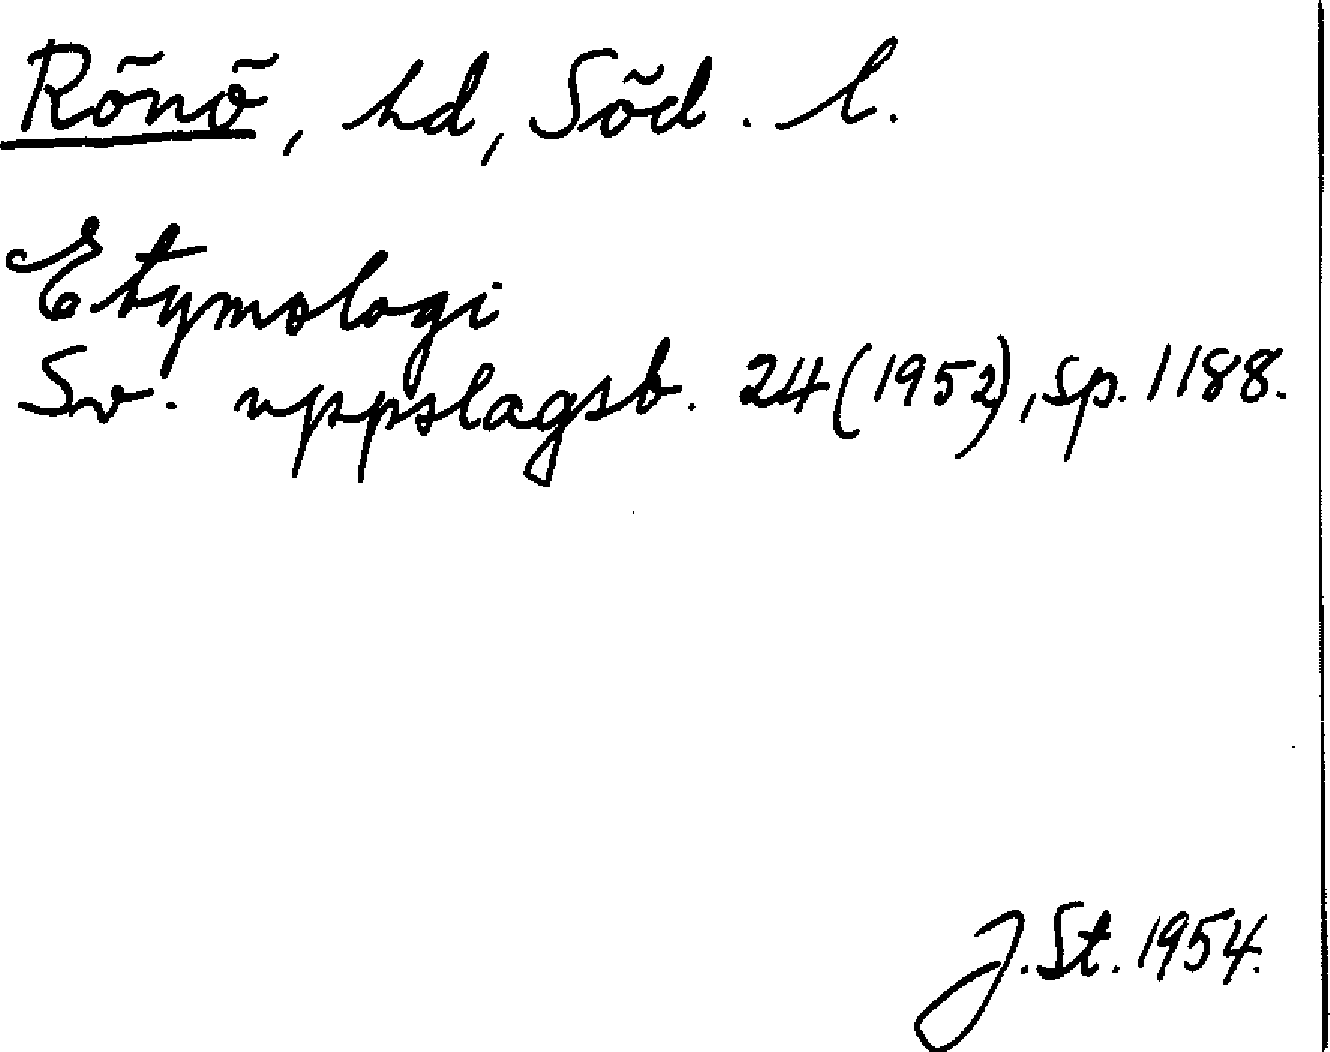 Rönö, hd, Söd. l.
Etymologi
Sv. uppslagsb. 24 (1952), sp. 1188.
J. St. 1954.